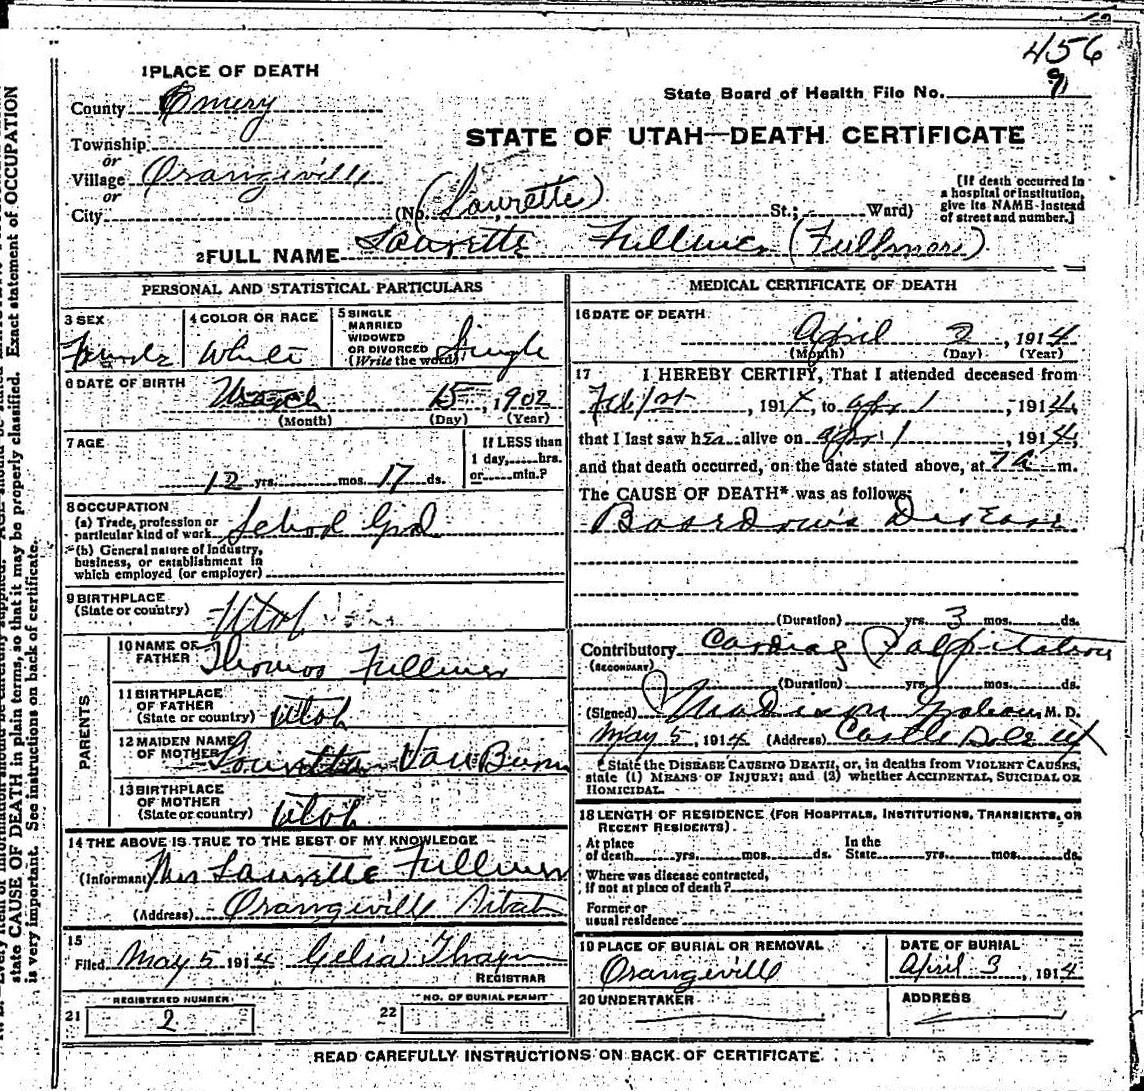 456
1 PLACE OF DEATH
State Board of Health File No. 91
County Emery
STATE OF UTAH—DEATH CERTIFICATE
Township
or
Village Orangeville
or
City
(No. (Laurette) St.; Ward)
[If death occurred in
a hospital or institution,
give its NAME instead
of street and number.]
2 FULL NAME Laurette Fullmer (Fullmore)
PERSONAL AND STATISTICAL PARTICULARS
3 SEX Female
4 COLOR OR RACE White
5 SINGLE
MARRIED
WIDOWED
OR DIVORCED
(Write the word) Single
6 DATE OF BIRTH
March 15, 1902
(Month) (Day) (Year)
7 AGE
12 yrs. mos. 17 ds.
If LESS than
1 day, hrs.
or min.?
8 OCCUPATION
(a) Trade, profession or
particular kind of work School Girl
(b) General nature of industry,
business, or establishment in
which employed (or employer)
9 BIRTHPLACE
(State or country) Utah
PARENTS
10 NAME OF
FATHER Thomas Fullmer
11 BIRTHPLACE
OF FATHER
(State or country) Utah
12 MAIDEN NAME
OF MOTHER Van Buren
13 BIRTHPLACE
OF MOTHER
(State or country) Utah
14 THE ABOVE IS TRUE TO THE BEST OF MY KNOWLEDGE
(Informant) Mrs Laurette Fullmer
(Address) Orangeville Utah
15
Filed May 5 1914 Celia
REGISTRAR
21 REGISTERED NUMBER
2
22 NO. OF BURIAL PERMIT
MEDICAL CERTIFICATE OF DEATH
16 DATE OF DEATH
April 2, 1914
(Month) (Day) (Year)
17 I HEREBY CERTIFY, That I attended deceased from
Feb 1st, 1914, to Apr 1, 1914,
that I last saw her alive on Apr 1, 1914,
and that death occurred, on the date stated above, at 7 a m.
The CAUSE OF DEATH* was as follows:
Disease
(Duration) yrs. 3 mos. ds.
Contributory Cardiac Palpitation
(SECONDARY)
(Duration) yrs. mos. ds.
(Signed) M. D.
May 5, 1914 (Address) Castle Dale Ut
*State the DISEASE CAUSING DEATH, or, in deaths from VIOLENT CAUSES,
state (1) MEANS OF INJURY; and (2) whether ACCIDENTAL, SUICIDAL OR
HOMICIDAL.
18 LENGTH OF RESIDENCE (FOR HOSPITALS, INSTITUTIONS, TRANSIENTS, OR
RECENT RESIDENTS)
At place
of death yrs. mos. ds.
In the
State yrs. mos. ds.
Where was disease contracted,
if not at place of death?
Former or
usual residence
19 PLACE OF BURIAL OR REMOVAL
Orangeville
DATE OF BURIAL
April 3, 1914
20 UNDERTAKER
ADDRESS
READ CAREFULLY INSTRUCTIONS ON BACK OF CERTIFICATE
state CAUSE OF DEATH in plain terms, so that it may be properly classified. Exact statement of OCCUPATION
is very important. See instructions on back of certificate.